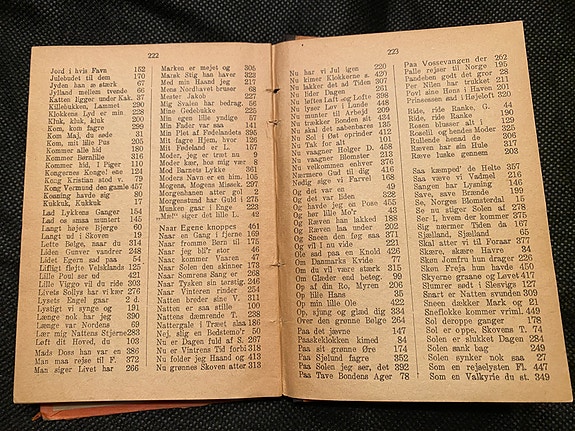 222
Jord i hvis Favn 152
Julebudet til dem 170
Jyden han æ stærk
Jylland mellem tvende 66
Katten ligger under Kak. 37
Killebukken, Lammet 290
Klokkens Lyd er min 228
Kluk, kluk, kluk 200
Kom, kom fagre 299
Kom Maj, du søde 31
Kom, mit lille Pus 205
Kommer alle hid 180
Kommer Børnlille 316
Kommer hid, I Piger 110
Kongernes Konge! ene 124
Kong Kristian stod v. 79
Kong Vermund den gamle 457
Kosning havde sig 80
Kukkuk, Kukkuk 17
Lad Lykkens Ganger 154
Lad os smaa muntert 145
Langt højere Bjerge 60
Langt ud i Skoven 19
Lette Bølge, naar du 314
Liden Gunver vandrer 248
Lidet Egern sad paa 54
Liflligt fløjte Velsklands 125
Lille Poul ser ud 421
Lille Viggo vil du ride 303
Livets Sollys har vi kær 276
Lysets Engel gaar 2 d.
Lystigt vi synge og 191
Længe nok har jeg 390
Længe var Nordens 69
Lær mig Nattens Stjerne 283
Løft dit Hoved, du 103
Mads Doss han var en 386
Man maa rejse til F. 372
Man siger Livet har 266
Marken er mejet og 305
Marsk Stig han haver 323
Med min Haand jeg 217
Mens Nordhavet bruser 68
Mester Jakob 227
Mig Svalen har bedrag. 56
Mine Gedebukke 225
Min egen lille yndige 57
Min Fader var saa 141
Mit Plet af Fødelandets 395
Mit fagre Hjem, hvor 126
Mit Fædeland er L. 127
Moder, jeg er træt nu 9
Moder kær, hos mig vær 8
Mod Barnets Lykke 361
Moders Navn er en him. 105
Mogens, Mogens Missek. 297
Morgenhanen atter gol 2
Morgenstund har Guld i 275
Munken gaar i Enge 223
„Mæ!" siger det lille L. 42
Naar Egene knoppes 461
Naar en Gang i fjerne 169
Naar fromme Børn til 175
Naar jeg bli'r stor 46
Naar kommer Vaaren 47
Naar Solen den skinner 173
Naar Somrens Sang er 268
Naar Tysken sin terstig. 246
Naar Vinteren rinder 254
Natten breder sine V. 311
Natten er saa stille 100
Nattens dæmrende T. 238
Nattergale i Træet slaa 385
Nej, slig en Bedstemo'r 50
Nu er Dagen fuld af S. 267
Nu er Vintrens Tid forbi 318
Nu folder jeg Haand og 413
Nu grønnes Skoven atter 313
223
Nu har vi Jul igen 220
Nu kimer Klokkerne s. 420
Nu lakker det ad Tiden 307
Nu lider Dagen 261
Nu løftes Laft og Lofte 398
Nu lyser Løv i Lunde 448
Nu munter til Arbejd 409
Nu trækker Bonden sit 434
Nu skal det aabenbares 135
Nu Sol i Øst oprinder 412
Nu Tak for alt 101
Nu vaagner Holger D. 458
Nu vaagner Blomster 213
Nu velkommen enhver 276
Nærmere Gud til dig 416
Nødig sige vi Farvel 168
Og det var en 49
Og det var Eden 328
Og havde jeg ej Pose 455
Og hør lille Mo'r 43
Og Ræven han lakked 188
Og Ræven laa under 202
Og Søens den føg saa 371
Og vil I nu vide 221
Ole sad paa en Knold 426
Om Danmarks Kvide 77
Om du vil være stærk 315
Om Glæder end beteg. 99
Op af din Ro, Myren 206
Op lille Hans 35
Op min lille Ole 422
Op, sjung og glæd dig 334
Over den grønne Bølge 264
Paa det jævne 147
Paaskeklokken kimed 84
Paa sit grønne Øre 144
Paa Sjelund fagre 352
Paa Solen jeg ser, det 392
Paa Tave Bondens Ager 78
Paa Vossevangen der 262
Palle rejser til Norge 195
Pandeben godt det gror 28
Per Nilen har trukket 211
Povl sine Høns i Haven 201
Prinsessen sad i Højeloft 320
Ride, ride Ranke, G. 44
Ride, ride Ranke 190
Rosen blusser alt i 129
Roselil og hendes Moder 325
Rullende henad de 306
Ræven har sin Hule 317
Ræve luske gennem 203
Saa kæmped' de Helte 357
Saa være vi Vadmel 216
Sangen har Lysning 146
Save, save Brænde 199
Se, Norges Blomsterdal 15
Se nu stiger Solen af 278
Ser I, hvem der kommer 375
Sig nærmer Tiden da 167
Sjælland, Sjælland 65
Skal atter vi til Foraar 377
Skære, skære Havre 34
Skøn Jomfru hun drager 226
Skøn Freja hun havde 450
Skyerne graane og Løvet 417
Slumrer sødt i Slesvigs 127
Snart er Natten svunden 309
Sneen dækker Mark og 21
Sneflokke kommer vriml. 449
Sol deroppe ganger 178
Sol er oppe, Skovens T. 74
Solen er slukket Dagen 284
Solen sank bag 251
Solen synker nok saa 27
Som en rejselysten Fl. 447
Som en Valkyrie du st. 349